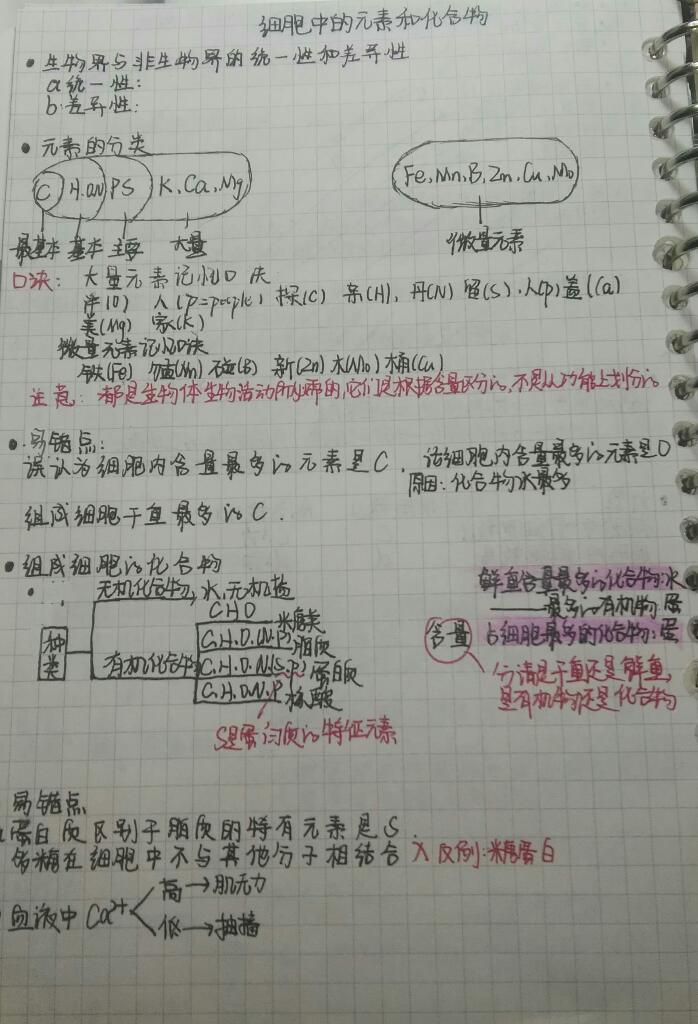 细胞中的元素和化合物
• 生物界与非生物界的统一性和差异性
a 统一性:
b 差异性:
• 元素的分类
C H.O.N P S K、Ca、Mg
Fe、Mn、B、Zn、Cu、Mo
最基本 基本 主要 大量
微量元素
口诀: 大量元素记忆口诀
洋(O) 人(P=people) 探(C) 亲(H), 丹(N) 留(S), 人(P) 盖(Ca)
美(Mg) 家(K)
微量元素记忆口诀
铁(Fe) 猛(Mn) 碰(B) 新(Zn) 木(Mo) 桶(Cu)
注意: 都是生物体生物活动所必需的,它们是根据含量区分的,不是从功能上划分的
• 易错点:
误认为细胞内含量最多的元素是C. 活细胞内含量最多的元素是O
原因:化合物水最多
组成细胞干重最多的C.
• 组成细胞的化合物
种类
无机化合物:水、无机盐
有机化合物
C H O 糖类
C.H.O.(N.P) 脂质
C.H.O.N(S.P) 蛋白质
C.H.O.N.P 核酸
S是蛋白质的特征元素
含量
鲜重含量最多的化合物:水
——最多的有机物:蛋
占细胞最多的化合物:蛋
分清是干重还是鲜重,
是有机物还是化合物
易错点
蛋白质区别于脂质的特有元素是S.
多糖在细胞中不与其他分子相结合 X 反例:糖蛋白
血液中 Ca²⁺
高→肌无力
低→抽搐